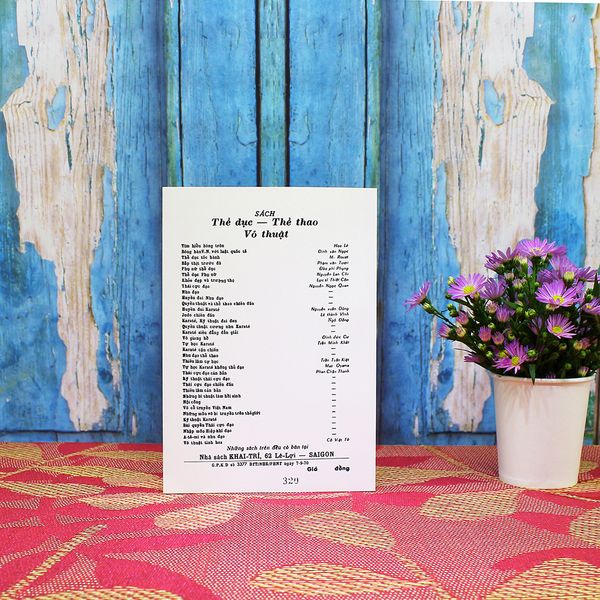 SÁCH
Thể dục — Thể thao
Võ thuật
Tìm hiểu bóng tròn Hao Lê
Bóng bàn V.N. với luật quốc tế Đinh văn Ngọc
Thể dục tóc hành M. Rouet
Bắp thịt trước đã Phạm văn Tươi
Phụ nữ thể dục Đào phi Phụng
Thể dục Phụ nữ Nguyễn Lan Chi
Khỏe đẹp và trường thọ Lực sĩ Thất Côn
Thái cực đạo Nguyễn Ngọc Quan
Nhu đạo —
Huyền đai Nhu đạo —
Quyền thuật và thể thao chiến đấu —
Huyền đai Karaté Nguyễn xuân Dũng
Judo chiến đấu Lê thành Vinh
Karaté, Kỹ thuật đai đen Ngô Đồng
Quyền thuật cương nhu Karaté —
Karaté siêu đẳng dẫn giải —
Võ giang hồ Đinh đức Cơ
Tự học Karaté Trần Minh Khiết
Karaté cận chiến —
Nhu đạo thể thao —
Thiếu lâm tự học Trần Tuấn Kiệt
Tự học Karaté không thủ đạo Mat Oyama
Thái cực đạo căn bản Phan Chấn Thanh
Kỹ thuật thái cực đạo —
Thái cực đạo chiến đấu —
Thiếu lâm căn bản —
Những bí thuật làm hồi sinh —
Nội công —
Võ cổ truyền Việt Nam —
Những môn võ bí truyền trên thế giới —
Kỹ thuật Karaté —
Bài quyền Thái cực đạo —
Nhập môn Hiệp khí đạo —
A-tê-mi và nhu đạo —
Võ thuật tinh hoa
Những sách trên đều có bán tại
Nhà sách KHAI-TRÍ, 62 Lê-Lợi — SAIGON
G.P.K.D số 3377 ngày 7-9-70
Giá đồng
329